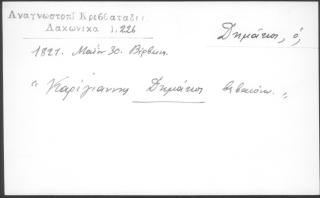 Ἀναγνωστοπ. Κρεββατᾶδες
Λακωνικά 1, 226
Δημάκος, ὁ,
1821. Μαΐου 30. Βέρβενα.
" Καρίγιαννη Δημάκος βεβαιόνω. "